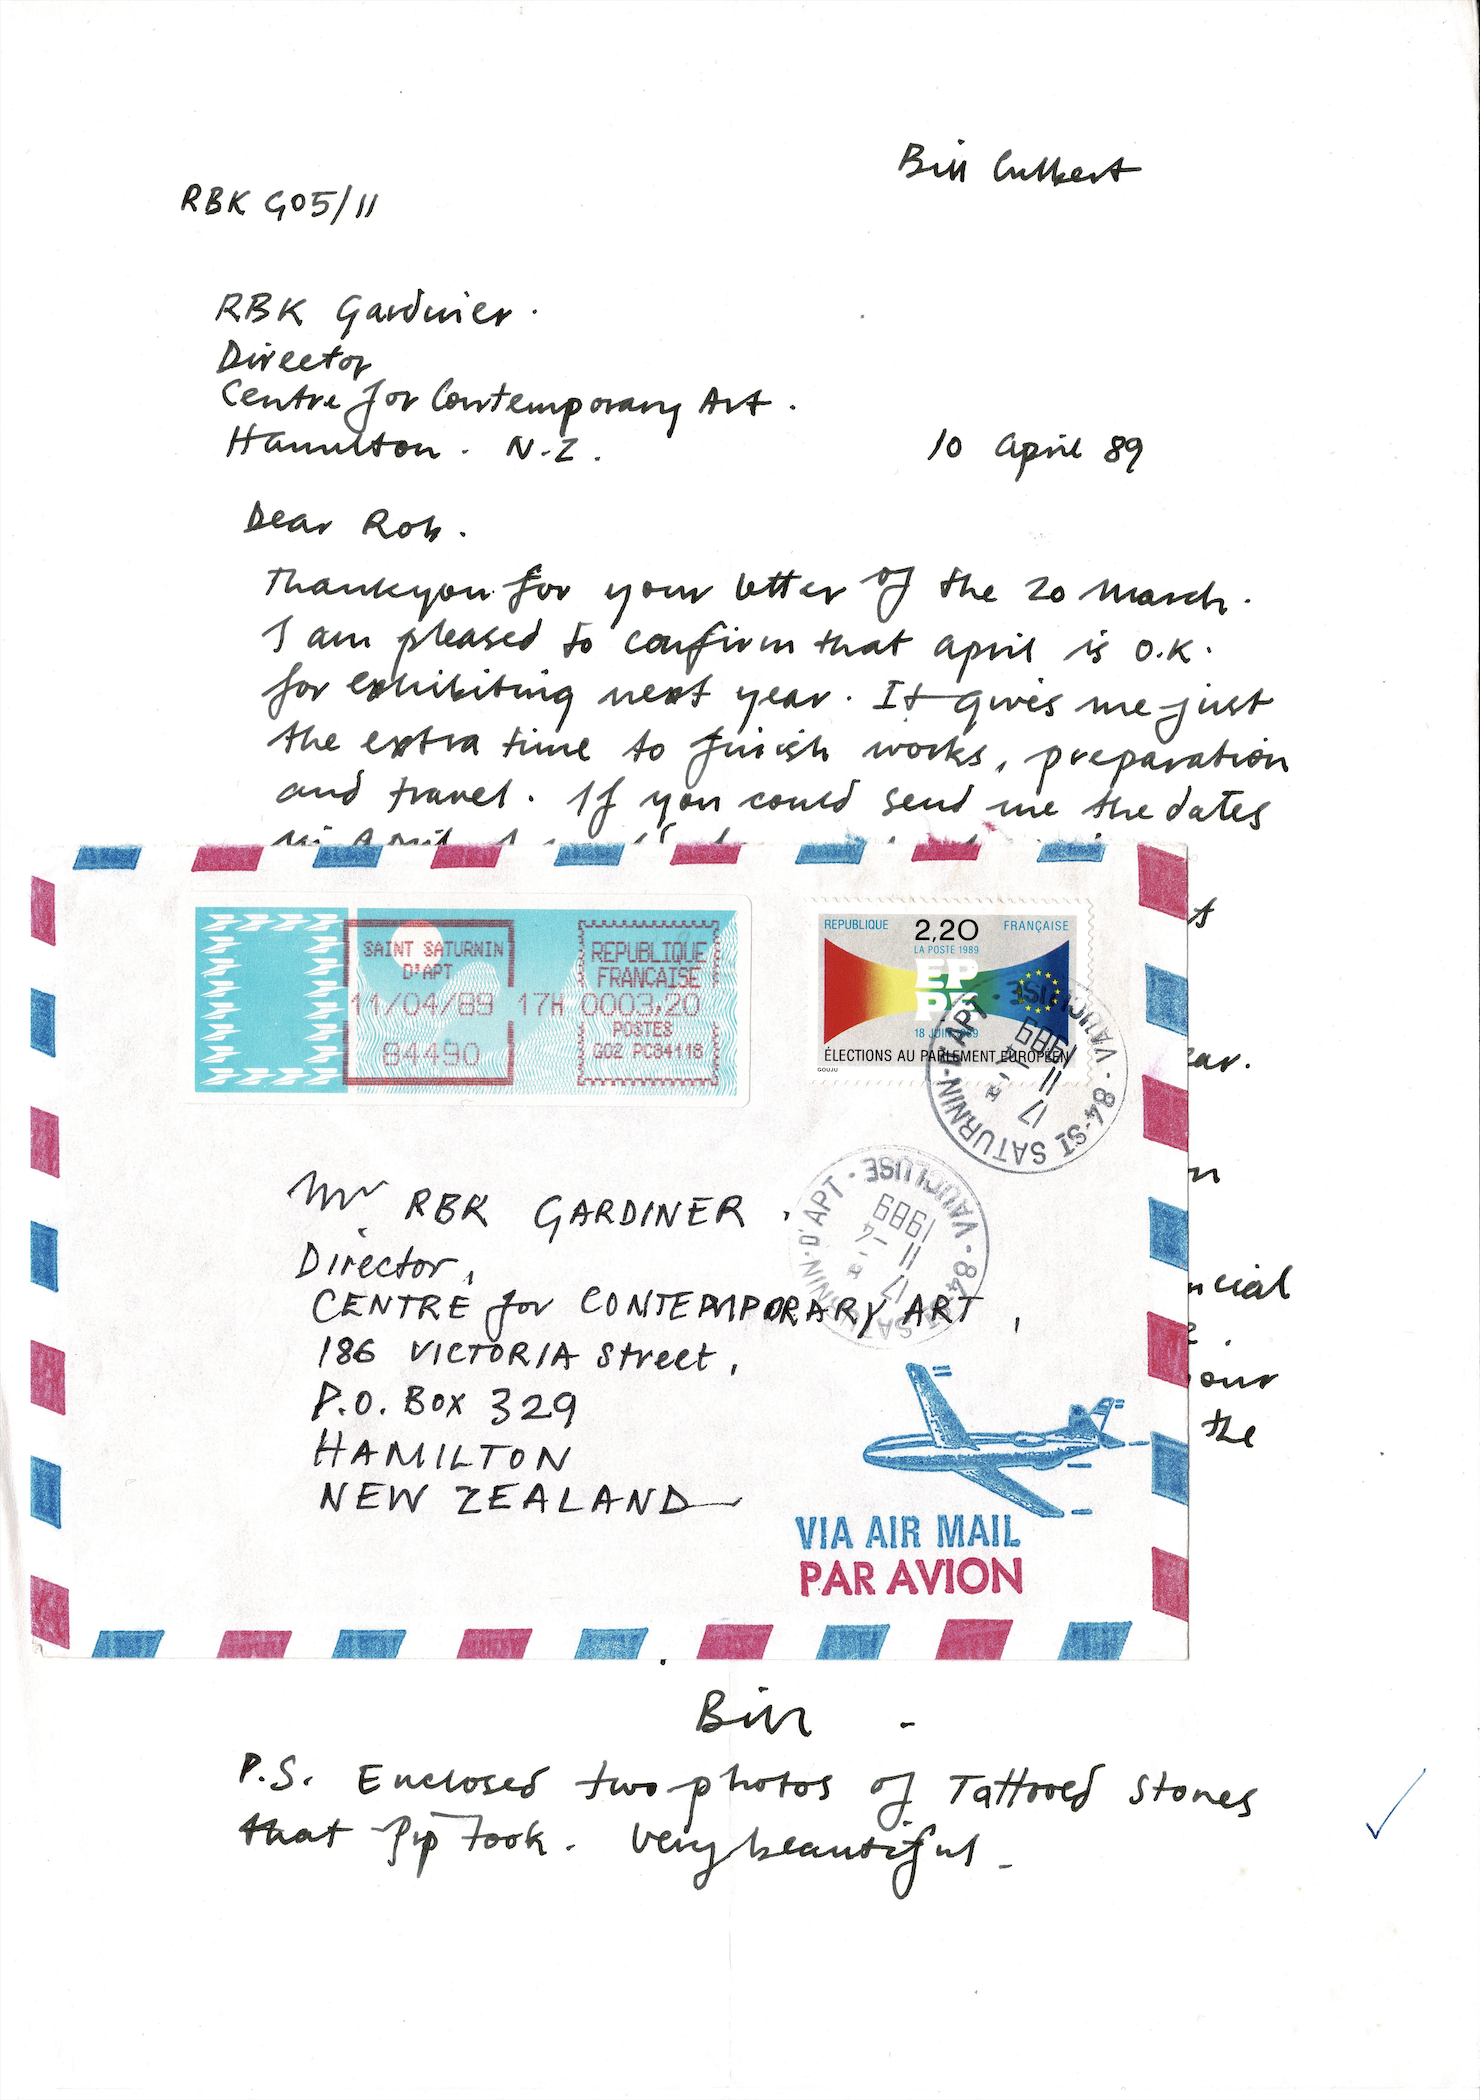 Bill Culbert
RBK G05/11
RBK Gardinier.
Director
Centre for Contemporary Art.
Hamilton. N.Z.
10 April 89
Dear Rob.
Thankyou for your letter of the 20 March.
I am pleased to confirm that april is O.K.
for exhibiting next year. It gives me just
the extra time to finish works, preparation
and travel. If you could send me the dates
in April
ear.
ncial
our
the
SAINT SATURNIN
D'APT
11/04/89 17H 0003,20
84490
REPUBLIQUE
FRANCAISE
POSTES
G02 PC84118
REPUBLIQUE 2,20 FRANÇAISE
LA POSTE 1989
EP
PE
18 JUIN 1989
ÉLECTIONS AU PARLEMENT EUROPÉEN
GOUJU
84-ST SATURNIN-D'APT - VAUCLUSE
17 H
11 -4
1989
84-ST SATURNIN-D'APT - VAUCLUSE
17 H
11 -4
1989
Mr RBK GARDINER.
Director,
CENTRE for CONTEMPORARY ART,
186 VICTORIA Street,
P.O. Box 329
HAMILTON
NEW ZEALAND
VIA AIR MAIL
PAR AVION
Bill -
P.S. Enclosed two photos of Tattooed Stones
that Pip took. Very beautiful -